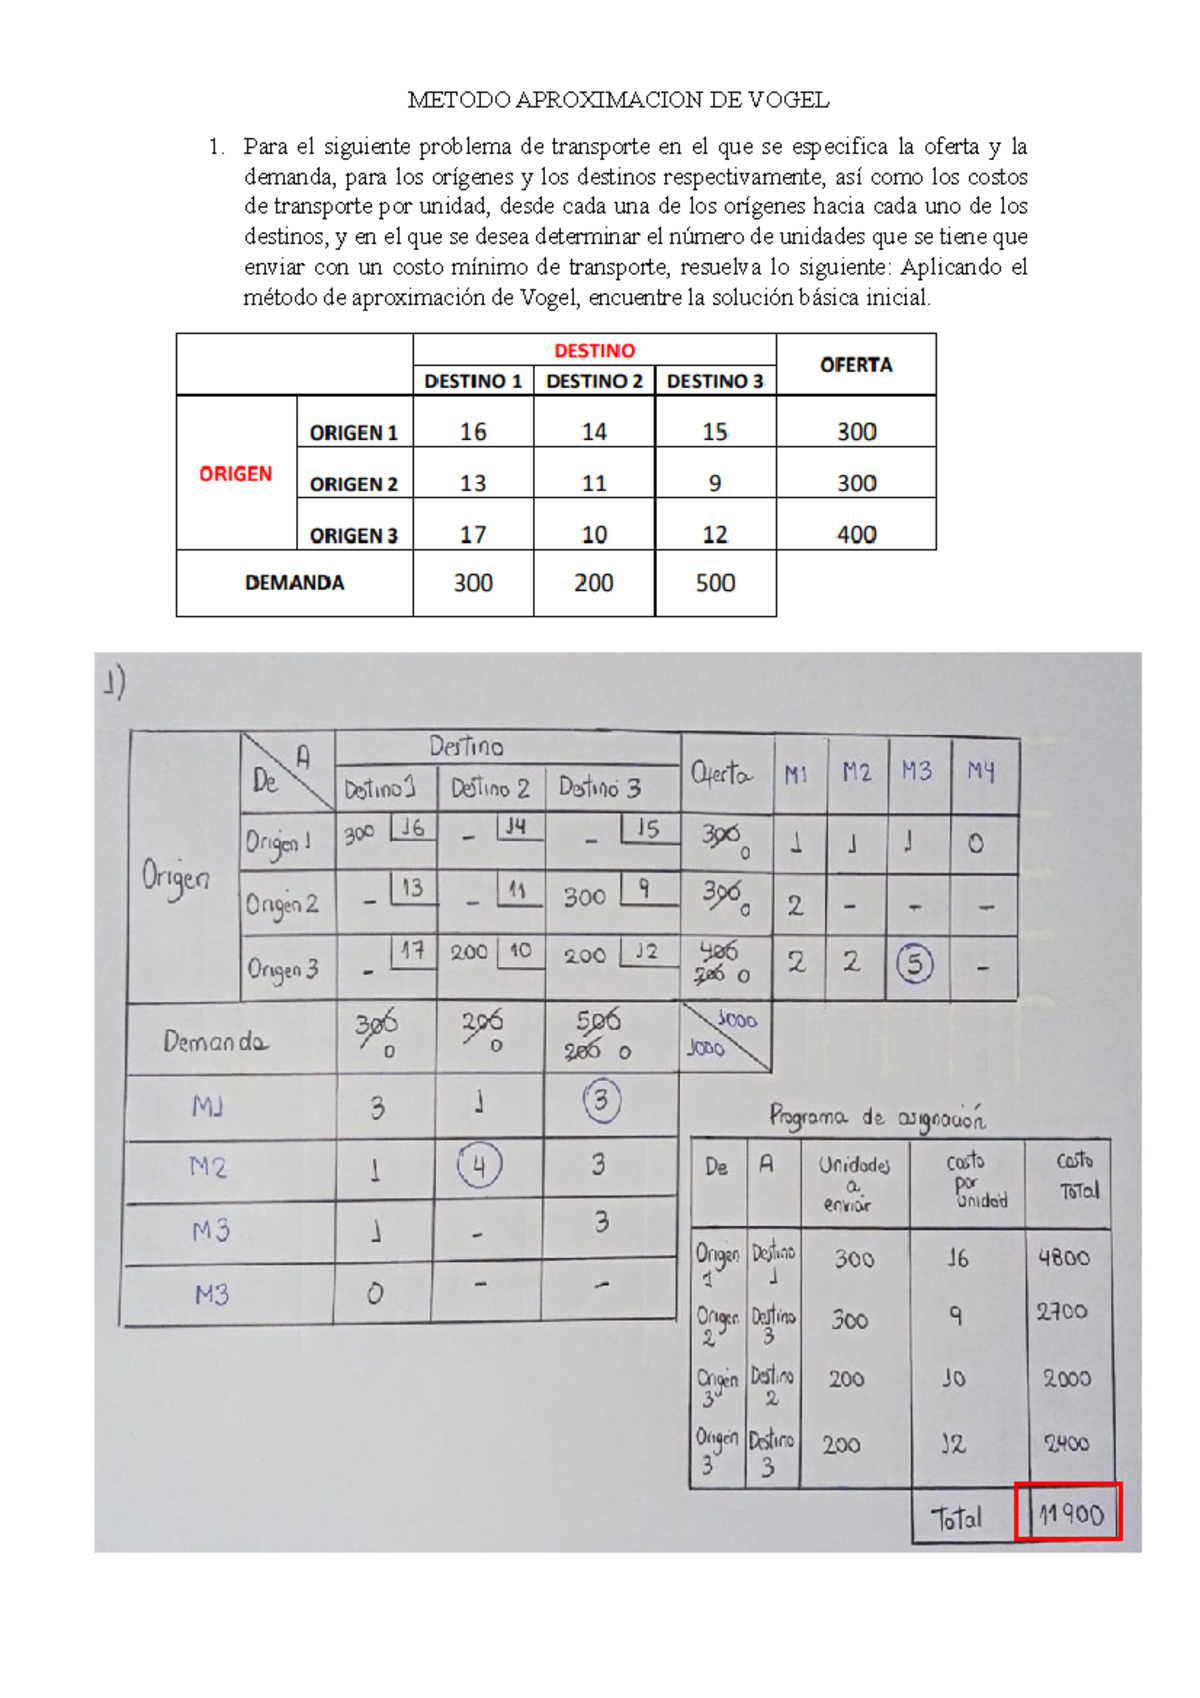 METODO APROXIMACION DE VOGEL
1. Para el siguiente problema de transporte en el que se especifica la oferta y la
demanda, para los orígenes y los destinos respectivamente, así como los costos
de transporte por unidad, desde cada una de los orígenes hacia cada uno de los
destinos, y en el que se desea determinar el número de unidades que se tiene que
enviar con un costo mínimo de transporte, resuelva lo siguiente: Aplicando el
método de aproximación de Vogel, encuentre la solución básica inicial.
DESTINO OFERTA
DESTINO 1 DESTINO 2 DESTINO 3
ORIGEN
ORIGEN 1 16 14 15 300
ORIGEN 2 13 11 9 300
ORIGEN 3 17 10 12 400
DEMANDA 300 200 500
1)
De A Destino Oferta M1 M2 M3 M4
Destino 1 Destino 2 Destino 3
Origen
Origen 1 300 16 - 14 - 15 300 0 1 1 1 0
Origen 2 - 13 - 11 300 9 300 0 2 - - -
Origen 3 - 17 200 10 200 12 400 200 0 2 2 5 -
Demanda 300 0 200 0 500 200 0 1000 1000
M1 3 1 3
M2 1 4 3
M3 1 - 3
M3 0 - -
Programa de asignación
De A Unidades a enviar costo por unidad costo Total
Origen 1 Destino 1 300 16 4800
Origen 2 Destino 3 300 9 2700
Origen 3 Destino 2 200 10 2000
Origen 3 Destino 3 200 12 2400
Total 11900